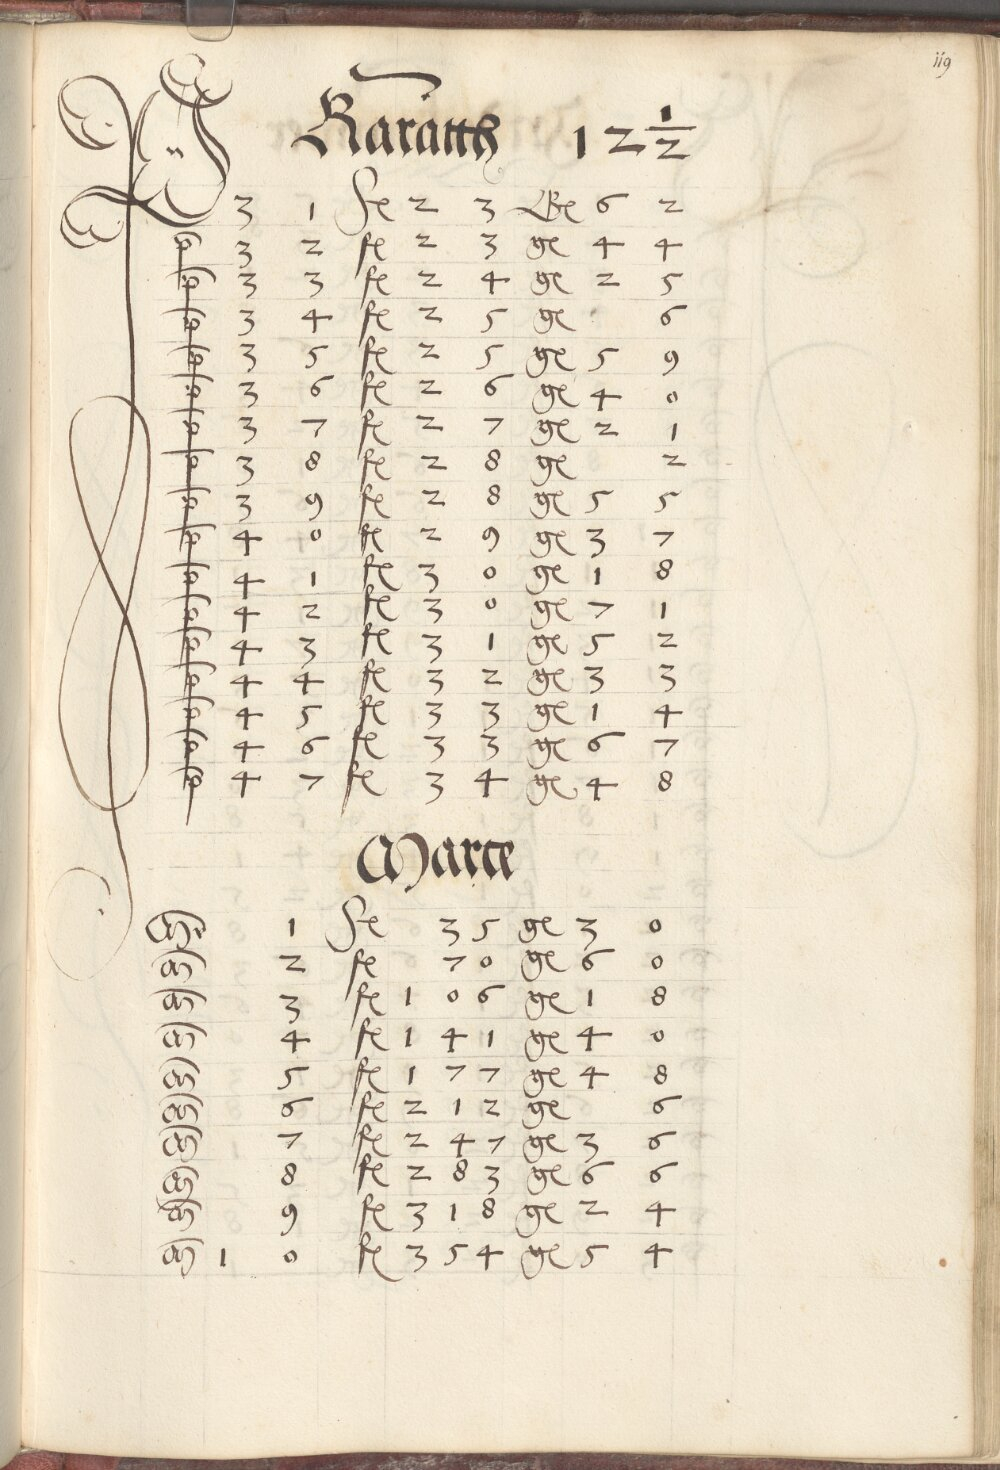 119
Karatth 12 1/2
3 1 fl 2 3 ge 6 2
3 2 fl 2 3 ge 4 4
3 3 fl 2 4 ge 2 5
3 4 fl 2 5 ge 6
3 5 fl 2 5 ge 5 9
3 6 fl 2 6 ge 4 0
3 7 fl 2 7 ge 2 1
3 8 fl 2 8 ge 2
3 9 fl 2 8 ge 5 5
4 0 fl 2 9 ge 3 7
4 1 fl 3 0 ge 1 8
4 2 fl 3 0 ge 7 1
4 3 fl 3 1 ge 5 2
4 4 fl 3 2 ge 3 3
4 5 fl 3 3 ge 1 4
4 6 fl 3 3 ge 6 7
4 7 fl 3 4 ge 4 8
Marce
1 fl 3 5 ge 3 0
2 fl 7 0 ge 6 0
3 fl 1 0 6 ge 1 8
4 fl 1 4 1 ge 4 0
5 fl 1 7 7 ge 4 8
6 fl 2 1 2 ge 6
7 fl 2 4 7 ge 3 6
8 fl 2 8 3 ge 6 6
9 fl 3 1 8 ge 2 4
1 0 fl 3 5 4 ge 5 4